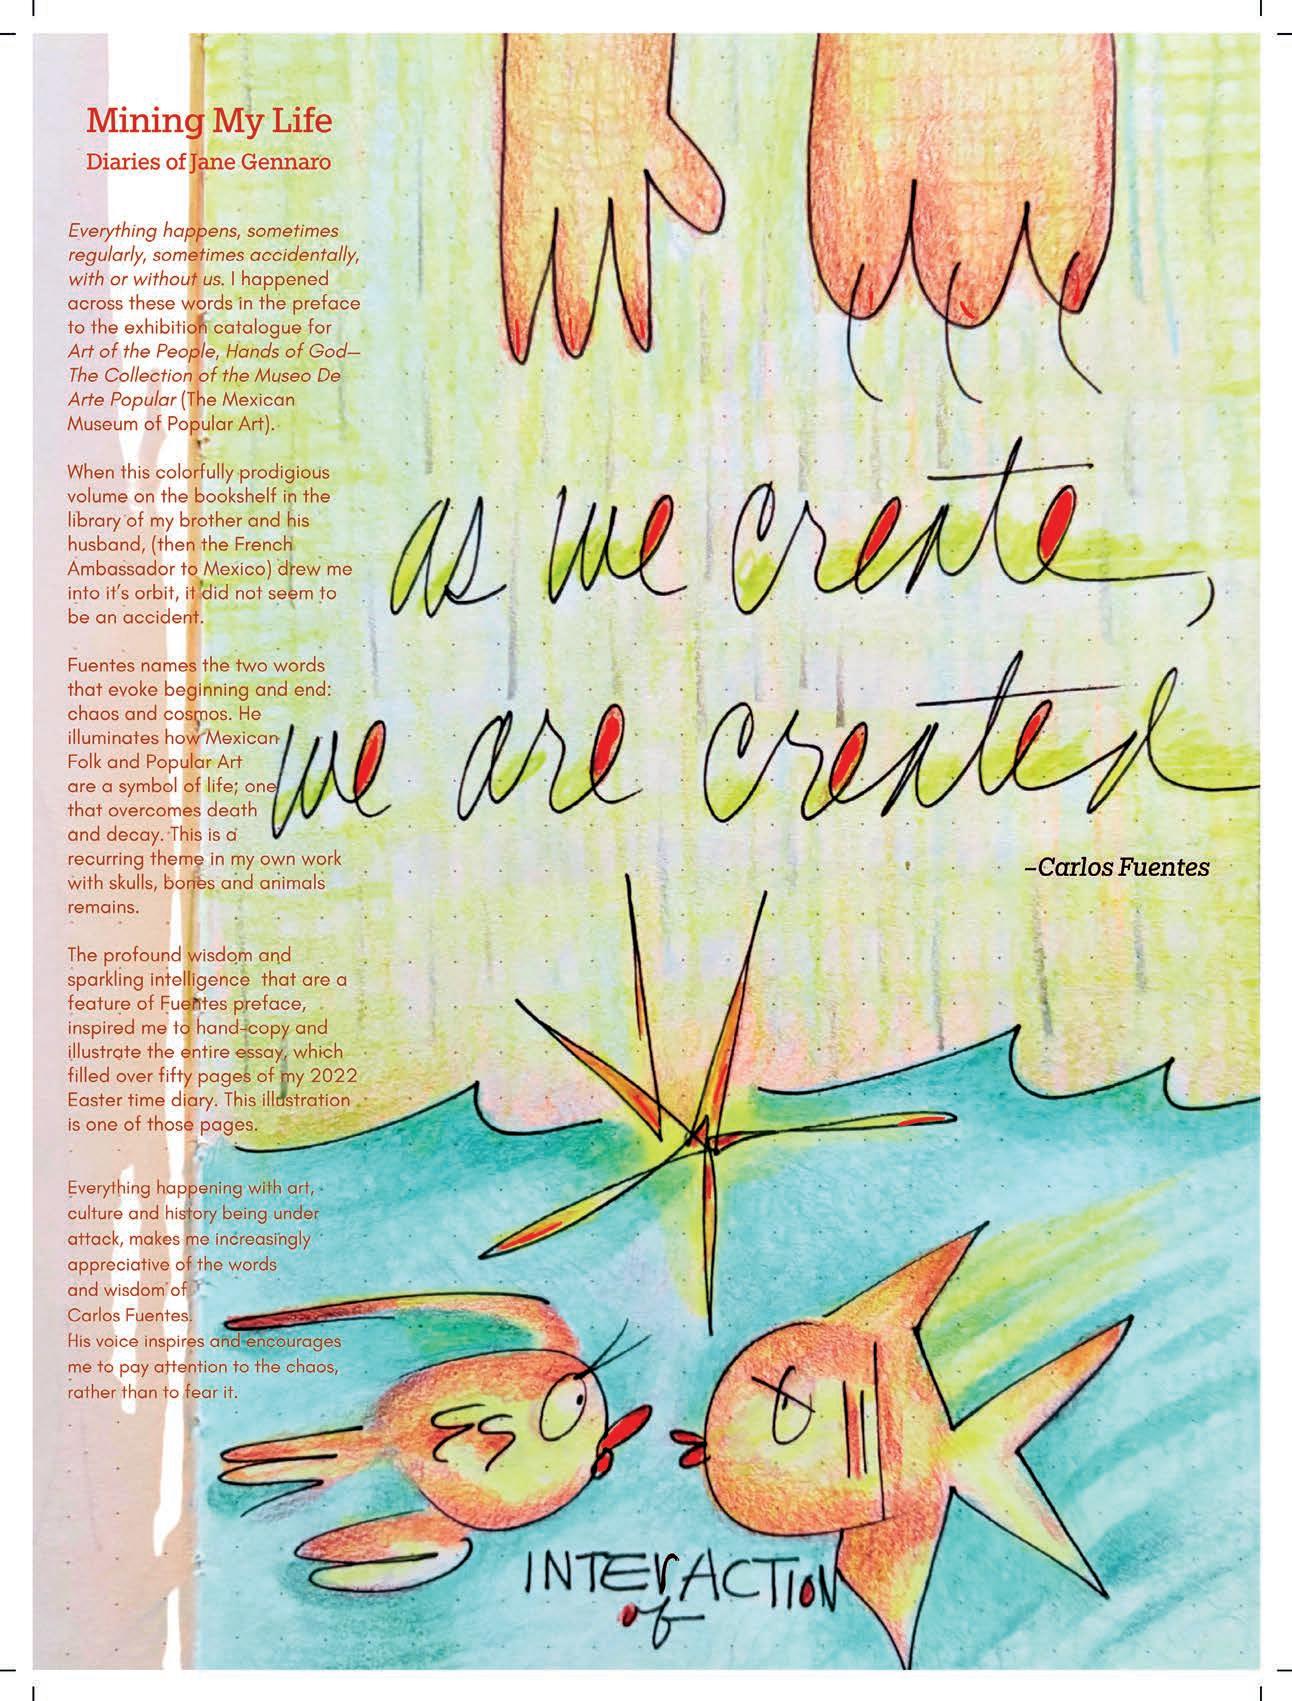 Mining My Life
Diaries of Jane Gennaro
Everything happens, sometimes
regularly, sometimes accidentally,
with or without us. I happened
across these words in the preface
to the exhibition catalogue for
Art of the People, Hands of God—
The Collection of the Museo De
Arte Popular (The Mexican
Museum of Popular Art).
When this colorfully prodigious
volume on the bookshelf in the
library of my brother and his
husband, (then the French
Ambassador to Mexico) drew me
into it's orbit, it did not seem to
be an accident.
Fuentes names the two words
that evoke beginning and end:
chaos and cosmos. He
illuminates how Mexican
Folk and Popular Art
are a symbol of life; one
that overcomes death
and decay. This is a
recurring theme in my own work
with skulls, bones and animals
remains.
The profound wisdom and
sparkling intelligence that are a
feature of Fuentes preface,
inspired me to hand-copy and
illustrate the entire essay, which
filled over fifty pages of my 2022
Easter time diary. This illustration
is one of those pages.
Everything happening with art,
culture and history being under
attack, makes me increasingly
appreciative of the words
and wisdom of
Carlos Fuentes.
His voice inspires and encourages
me to pay attention to the chaos,
rather than to fear it.
as we create,
we are created
–Carlos Fuentes
INTERACTION
of